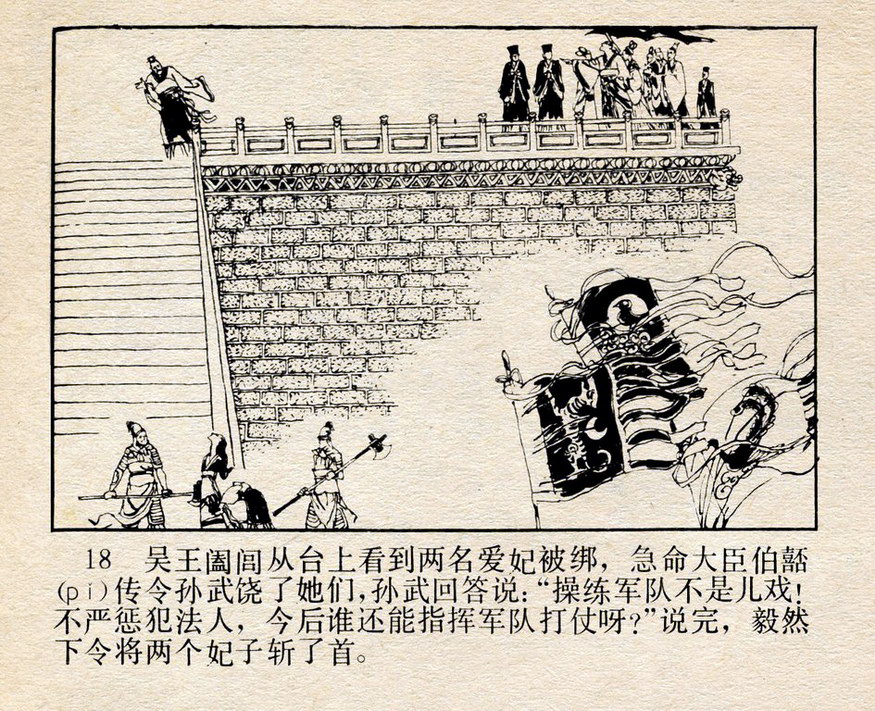 18 吴王阖闾从台上看到两名爱妃被绑，急命大臣伯嚭
(pǐ)传令孙武饶了她们，孙武回答说：“操练军队不是儿戏！
不严惩犯法人，今后谁还能指挥军队打仗呀？”说完，毅然
下令将两个妃子斩了首。